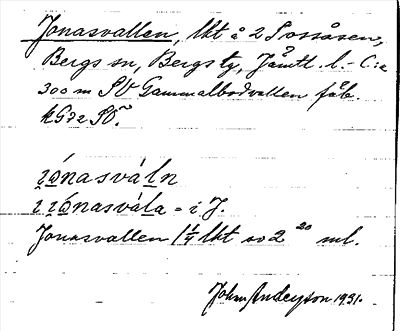 Jonasvallen, lkt å 2 Sossåsen,
Bergs sn, Bergs tg, Jämtl. l. - C:a
300 m SV Gammalbodvallen fäb.
kG32 SÖ.
i̯ónasváln
i i̯ónasvála = i J
Jonasvallen 1 1/4 lkt so 2 20 ml.
John Anderson 1931.